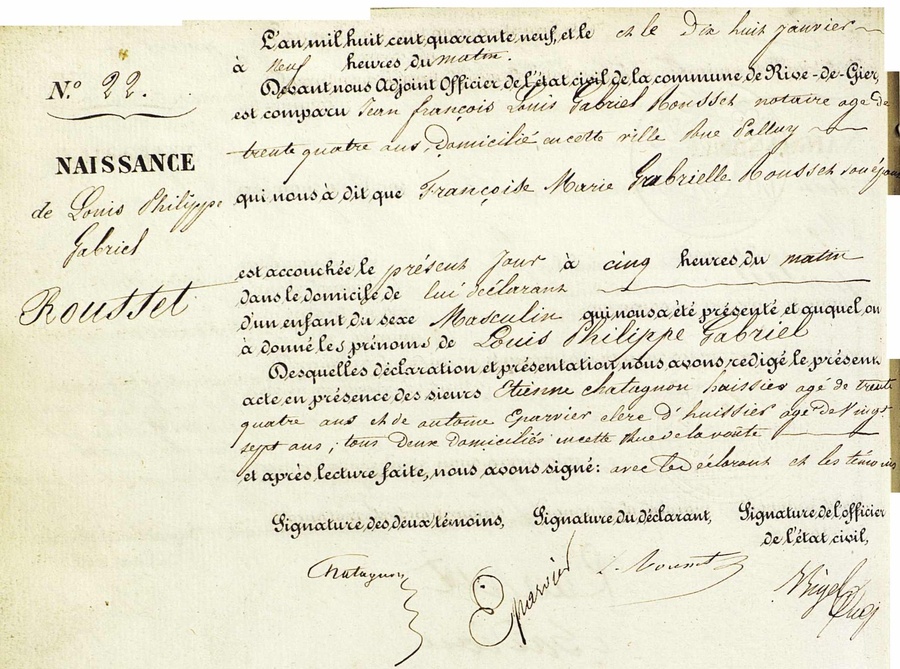 L'an mil huit cent quarante neuf, et le et le Dix huit janvier
à Neuf heures du matin.
N.o 22.
Devant nous Adjoint Officier de l'état civil de la commune de Rive-de-Gier,
est comparu Jean françois Louis Gabriel Rousset notaire agé de
trente quatre ans, Domicilié en cette ville Rue Palluy
NAISSANCE
qui nous à dit que Françoise Marie Gabrielle Rousset son épouse
de Louis Philippe
Gabriel
est accouchée le présent Jour à cinq heures du matin
dans le domicile de lui déclarant
Rousset
d'un enfant du sexe Masculin qui nous a été présenté et auquel on
à donné les prénoms de Louis Philippe Gabriel
Desquelles déclaration et présentation nous avons redigé le présent
acte en présence des sieurs Etienne Chatagnon huissier agé de trente
quatre ans et de antoine Eparvier clerc d'huissier agé de Vingt
sept ans; tous deux domiciliés en cette Rue de la voûte
et après lecture faite, nous avons signé: avec le déclarant et les témoins
Signature des deux témoins, Signature du déclarant, Signature de l'officier
de l'état civil,
Chatagnon
Eparvier
L. Rousset